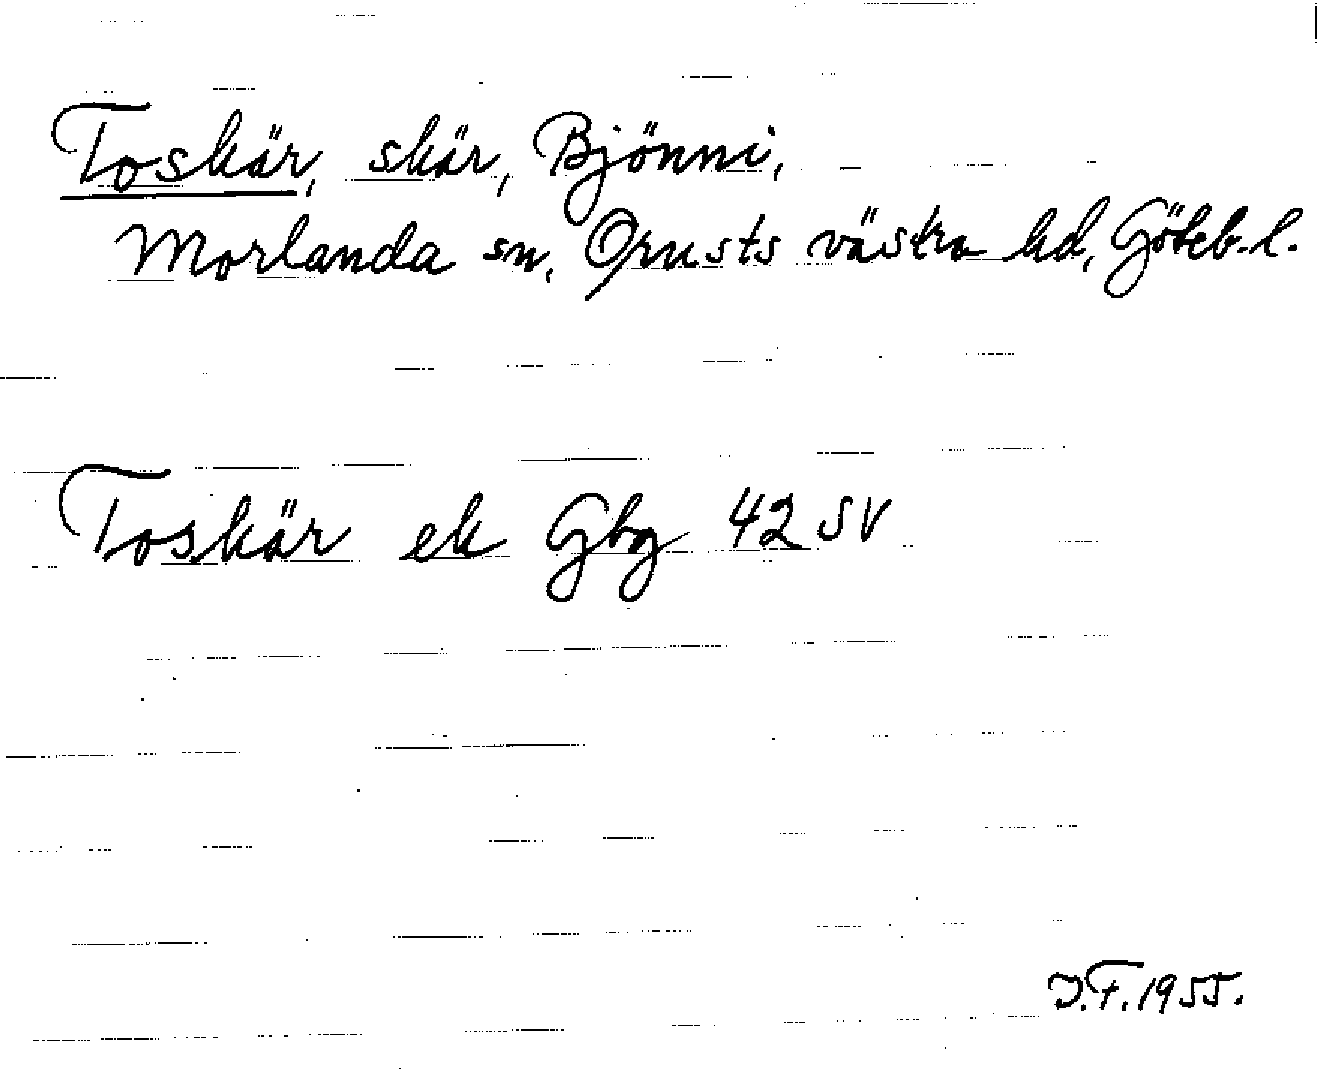 Toskär, skär, Björnni,
Morlanda sn, Orusts västra hd, Göteb. l.
Toskär ek Gbg 42 SV
I.F. 1955.